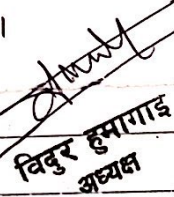 ।
विदुर हुमागाइ
अध्यक्ष